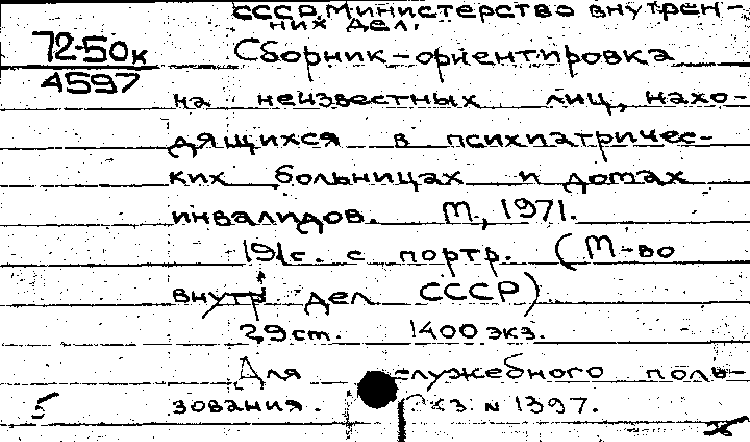 СССР. Министерство внутрен-
них дел.
72-50к
4597
Сборник-ориентировка
на неизвестных лиц, нахо-
дящихся в психиатричес-
ких больницах и домах
инвалидов. М, 1971.
191с. с портр. (М-во
внутр дел СССР)
29 см. 1400 экз.
Для служебного поль-
зования. Экз. N 1397.
5